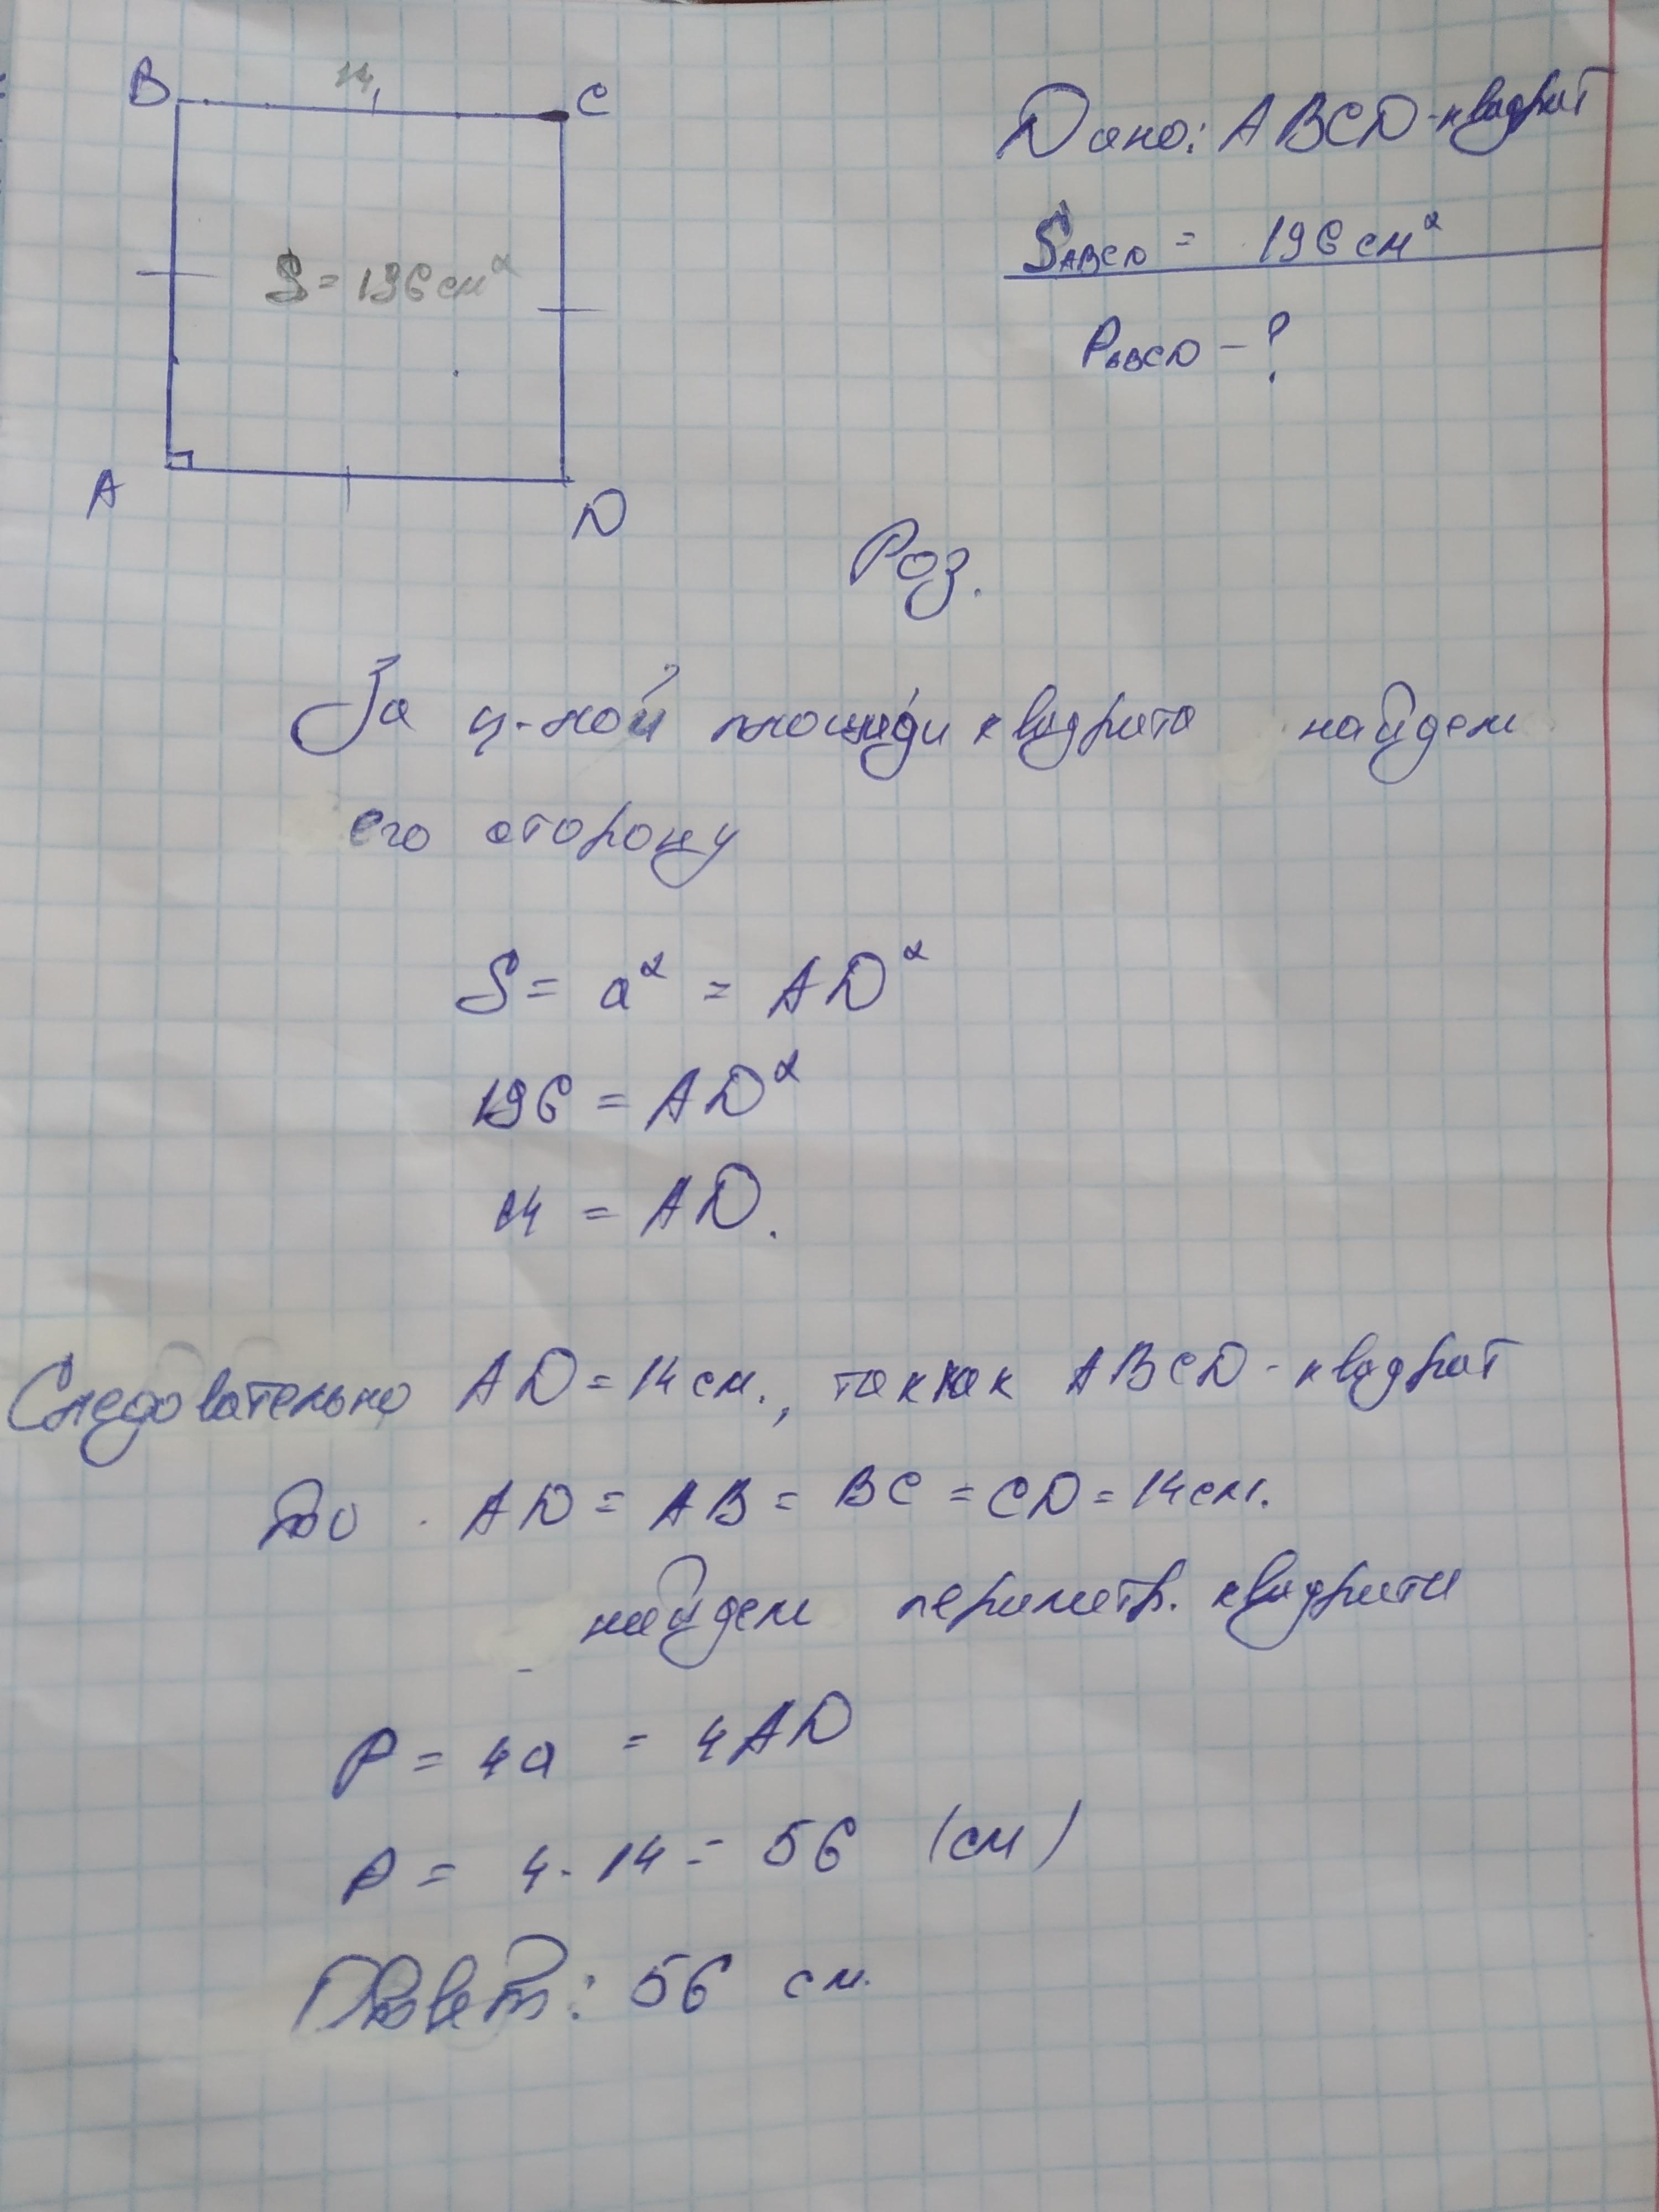 B
14
C
S = 196 см²
A
D
Дано: ABCD - квадрат
S ABCD = 196 см²
P ABCD - ?
Роз.
За ц-лой площади квадрата найдем
его сторону
S = a² = AD²
196 = AD²
14 = AD.
Следовательно AD = 14 см., так как ABCD - квадрат
то AD = AB = BC = CD = 14 см.
найдем периметр. квадрата
P = 4a = 4AD
P = 4 · 14 = 56 (см)
Ответ: 56 см.